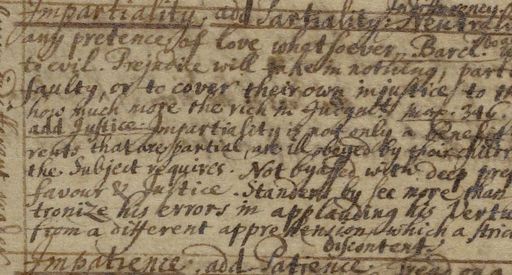 Impartiality. add Partiality. Neutrali
any pretence of love whatsoever. Barcl.
to evil. Prejudice will take in nothing, parti
faulty, or to cover their own injustice to th
how much more the rich in Iniquity 346.
add Justice. Impartiality is not only a benefi
rents that are partial, are ill obeyed by their childre
the Subject requires. Not byassed with deep pre
favour & Justice. Standers by see more than
tronize his errors in applauding his Vertu
from a different apprehension, which a stric
discontent.
Impatience. add Patience.